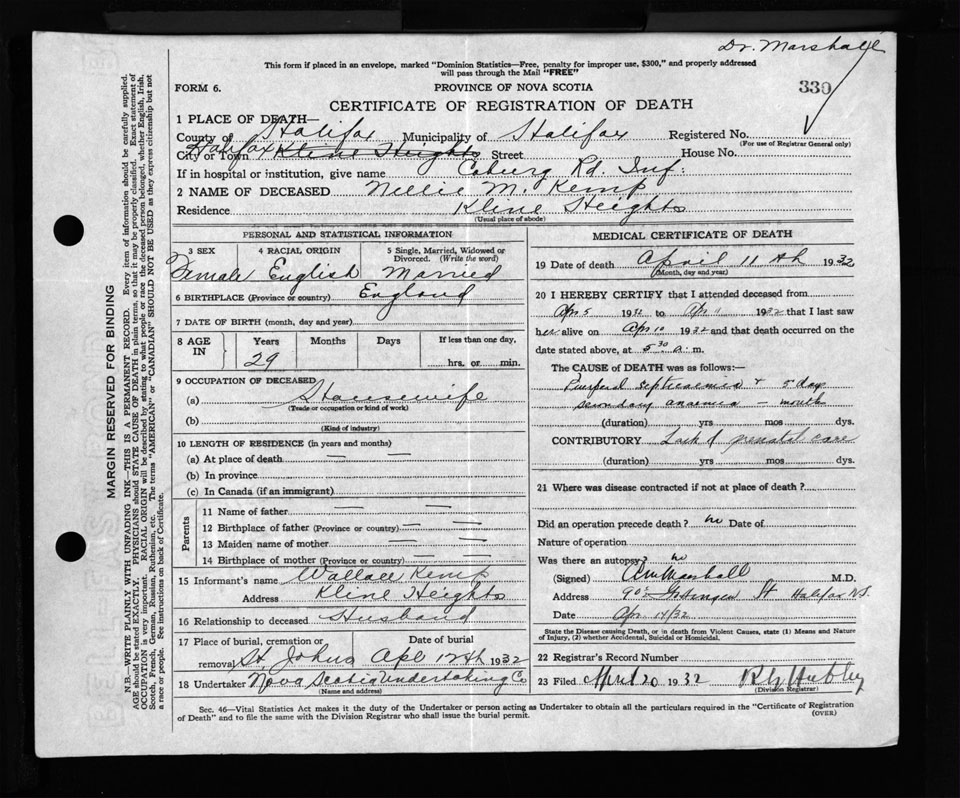 Dr. Marshall
This form if placed in an envelope, marked "Dominion Statistics—Free, penalty for improper use, $300," and properly addressed
will pass through the Mail "FREE"
FORM 6.
PROVINCE OF NOVA SCOTIA
330
CERTIFICATE OF REGISTRATION OF DEATH
1 PLACE OF DEATH—
County of Halifax Municipality of Halifax Registered No.
(For use of Registrar General only)
City or Town Halifax Kline Heights Street House No.
If in hospital or institution, give name Coburg Rd. Inf:
2 NAME OF DECEASED Nellie M. Kemp
Residence Kline Heights
(Usual place of abode)
PERSONAL AND STATISTICAL INFORMATION
3 SEX 4 RACIAL ORIGIN 5 Single, Married, Widowed or
Divorced. (Write the word)
Female English Married
6 BIRTHPLACE (Province or country) England
7 DATE OF BIRTH (month, day and year)
8 AGE IN Years Months Days If less than one day,
29 hrs. or min.
9 OCCUPATION OF DECEASED
(a) Housewife
(Trade or occupation or kind of work)
(b)
(Kind of industry)
10 LENGTH OF RESIDENCE (in years and months)
(a) At place of death — —
(b) In province
(c) In Canada (if an immigrant)
Parents
11 Name of father — —
12 Birthplace of father (Province or country) — —
13 Maiden name of mother — —
14 Birthplace of mother (Province or country) — —
15 Informant's name Wallace Kemp
Address Kline Heights
16 Relationship to deceased Husband
17 Place of burial, cremation or Date of burial
removal St. Johns Apl 12th 1932
18 Undertaker Nova Scotia Undertaking Co
(Name and address)
MEDICAL CERTIFICATE OF DEATH
19 Date of death April 11th 1932
(Month, day and year)
20 I HEREBY CERTIFY that I attended deceased from
Apr 5 1932 to Apr 11 1932 that I last saw
her alive on Apr 10 1932 and that death occurred on
the date stated above, at 5 30 a. m.
The CAUSE of DEATH was as follows:—
Puerperal septicaemia + 5 day
secondary anaemia — month
(duration) yrs mos dys.
CONTRIBUTORY Lack of prenatal care
(duration) yrs mos dys.
21 Where was disease contracted if not at place of death?
Did an operation precede death? no Date of
Nature of operation
Was there an autopsy? no
(Signed) Marshall M.D.
Address Gottingen St Halifax N.S.
Date /32
State the Disease causing Death, or in death from Violent Causes, state (1) Means and Nature
of Injury, (2) whether Accidental, Suicidal or Homicidal.
22 Registrar's Record Number
23 Filed April 20 1932 Hubley
(Division Registrar)
Sec. 46—Vital Statistics Act makes it the duty of the Undertaker or person acting as Undertaker to obtain all the particulars required in the "Certificate of Registration
of Death" and to file the same with the Division Registrar who shall issue the burial permit. (OVER)
MARGIN RESERVED FOR BINDING
N.B.—WRITE PLAINLY WITH UNFADING INK—THIS IS A PERMANENT RECORD. Every item of information should be carefully supplied.
AGE should be stated EXACTLY. PHYSICIANS should STATE CAUSE OF DEATH in plain terms, so that it may be properly classified. Exact statement of
OCCUPATION is very important. RACIAL ORIGIN will be described by stating to what people or race the deceased person belonged, whether English, Irish,
Scotch, French, German, Russian, Ruthenian, etc. The terms "AMERICAN" or "CANADIAN" SHOULD NOT BE USED as they express citizenship but not
a race or people. See instructions on back of Certificate.